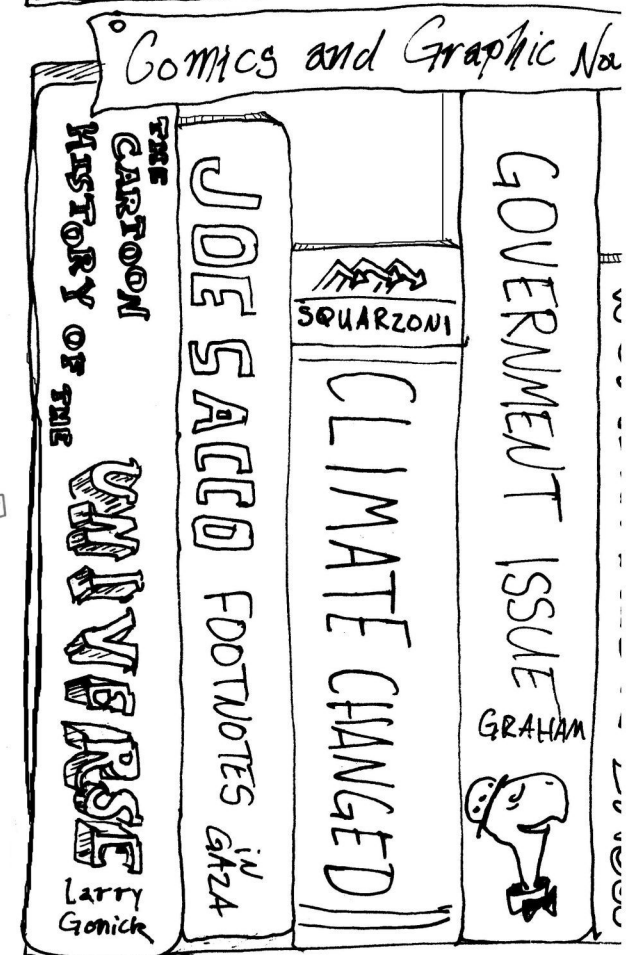 Comics and Graphic
THE
CARTOON
HISTORY OF THE
UNIVERSE
Larry
Gonick
JOE SACCO
FOOTNOTES
IN
GAZA
SQUARZONI
CLIMATE CHANGED
GOVERNMENT ISSUE
GRAHAM